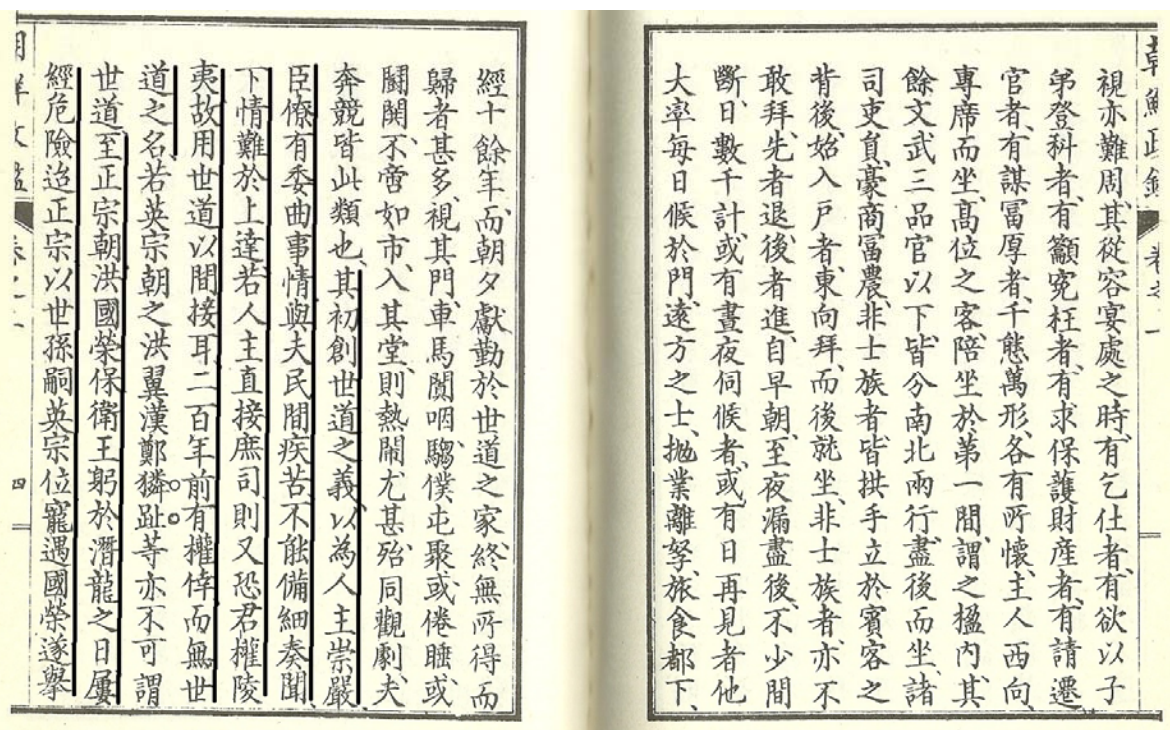 朝鮮政鑑 卷之一
視亦難周、其從容宴處之時、有乞仕者、有欲以子
弟登科者、有籲寃枉者、有求保護財産者、有請遷
官者、有謀冨厚者、千態萬形、各有所懷、主人西向、
專席而坐、高位之客、陪坐於第一間、謂之楹内、其
餘文武三品官以下、皆分南北兩行、盡後而坐、諸
司吏員、豪商冨農、非士族者、皆拱手立於賓客之
背後、始入戸者、東向拜、而後就坐、非士族者、亦不
敢拜、先者退、後者進、自早朝、至夜漏盡後、不少間
斷、日數千計、或有晝夜伺候者、或有日再見者、他
大率每日候於門、遠方之士、抛業離孥、旅食都下、
經十餘年、而朝夕獻勤於世道之家、終無所得而
歸者甚多、視其門、車馬闐咽、騶僕屯聚、或倦睡或
鬪鬨、不啻如市、入其堂、則熱閙尤甚、殆同觀劇、夫
奔競皆此類也、其初創世道之義、以為人主崇嚴、
臣僚有委曲事情、與夫民間疾苦、不能備細奏聞、
下情難於上達、若人主直接庶司、則又恐君權陵
夷、故用世道以間接耳、二百年前有權倖而無世
道之名、若英宗朝之洪翼漢鄭獜趾等、亦不可謂
世道、至正宗朝、洪國榮保衛王躬於潛龍之日、屢
經危險、迨正宗以世孫嗣英宗位、寵遇國榮、遂擧
朝鮮政鑑 卷之一 四